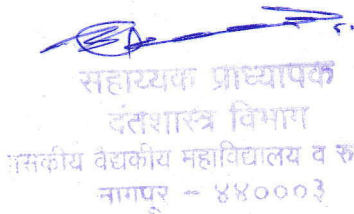 सहाय्यक प्राध्यापक
दंतशास्त्र विभाग
ासकीय वैद्यकीय महाविद्यालय व रु
नागपूर - ४४०००३